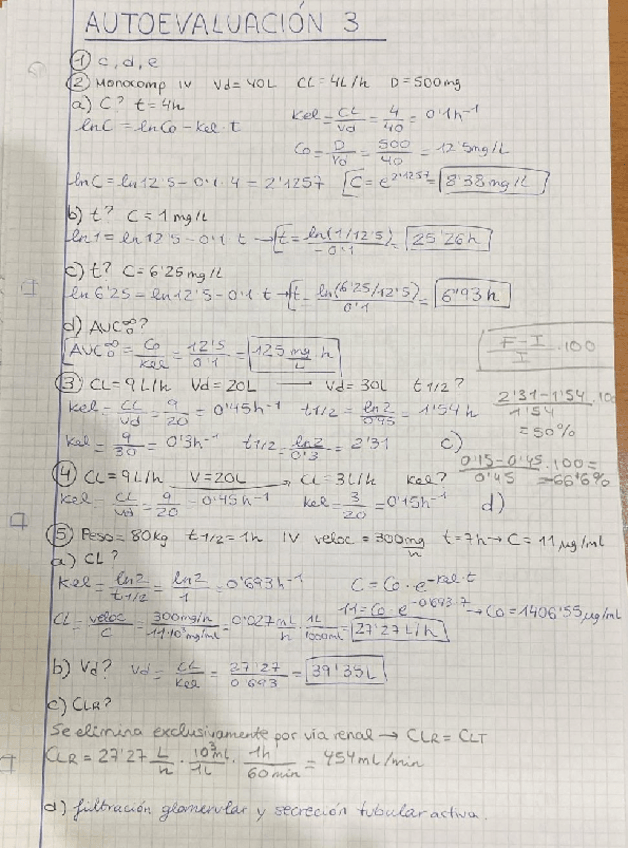 AUTOEVALUACIÓN 3
① c, d, e
② Monocomp IV Vd = 40L CL = 4L/h D = 500mg
a) C? t = 4h
Kel = CL/Vd = 4/40 = 0'1h⁻¹
lnC = lnC₀ - Kel · t
C₀ = D/Vd = 500/40 = 12'5mg/L
lnC = ln12'5 - 0'1 · 4 = 2'1257 [C = e^2'1257 = 8'38 mg/L
b) t? C = 1 mg/L
ln1 = ln12'5 - 0'1 t → [t = ln(1/12'5)/-0'1 = 25'26h
c) t? C = 6'25 mg/L
ln 6'25 = ln12'5 - 0'1 t → [t = ln(6'25/12'5)/0'1 = 6'93h
d) AUC₀^∞?
[AUC₀^∞ = C₀/Kel = 12'5/0'1 = 125 mg/L · h
F-I/I · 100
③ CL = 9L/h Vd = 20L → Vd = 30L t1/2?
Kel = CL/Vd = 9/20 = 0'45h⁻¹ t1/2 = ln2/0'45 = 1'54 h
2'31-1'54/1'54 · 100 = 50%
Kel = 9/30 = 0'3h⁻¹ t1/2 = ln2/0'3 = 2'31 c)
④ CL = 9L/h V = 20L → CL = 3L/h Kel?
0'15-0'45/0'45 · 100 = -66'6%
Kel = CL/Vd = 9/20 = 0'45h⁻¹ Kel = 3/20 = 0'15h⁻¹ d)
⑤ Peso = 80kg t1/2 = 1h IV veloc = 300mg/h t = 7h → C = 11 µg/ml
a) CL?
Kel = ln2/t1/2 = ln2/1 = 0'693h⁻¹ C = C₀ · e^-Kel·t
11 = C₀ · e^-0'693·7 → C₀ = 1406'55 µg/ml
CL = veloc/C = 300mg/h / 11·10³mg/ml = 0'027 mL/h · 1L/1000ml = 27'27L/h
b) Vd? Vd = CL/Kel = 27'27/0'693 = 39'35L
c) CLR?
Se elimina exclusivamente por vía renal → CLR = CLT
CLR = 27'27 L/h · 10³ml/1L · 1h/60min = 454mL/min
d) filtración glomerular y secreción tubular activa.